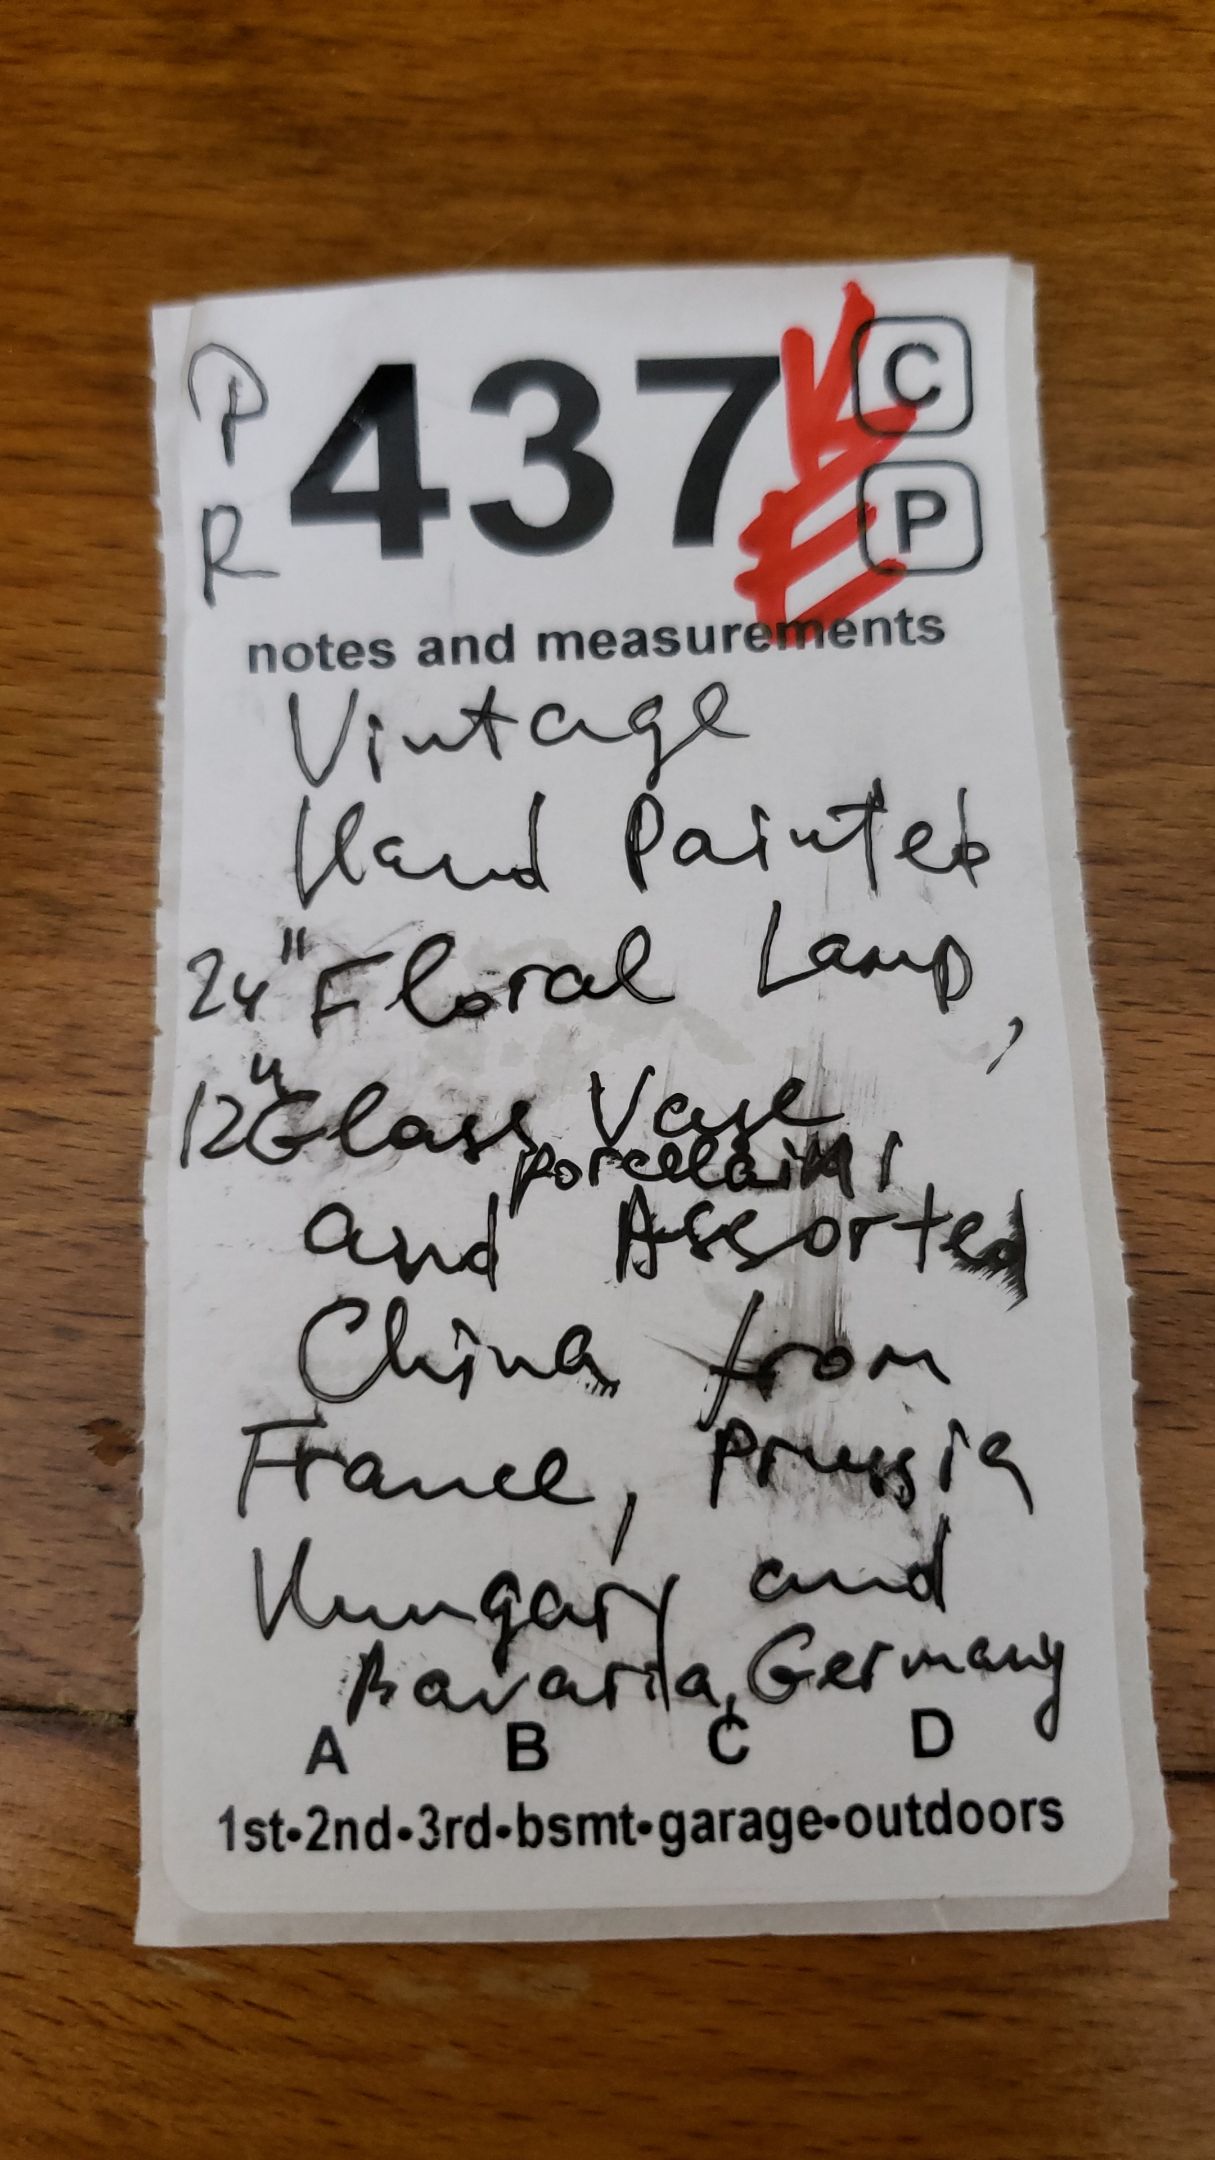 P
R
437
VE
C
P
notes and measurements
Vintage
Hand Painted
24" Floral Lamp,
12" Glass Vase
porcelains
and Assorted
China from
France, Prussia
Hungary and
Bavaria, Germany
A B C D
1st•2nd•3rd•bsmt•garage•outdoors